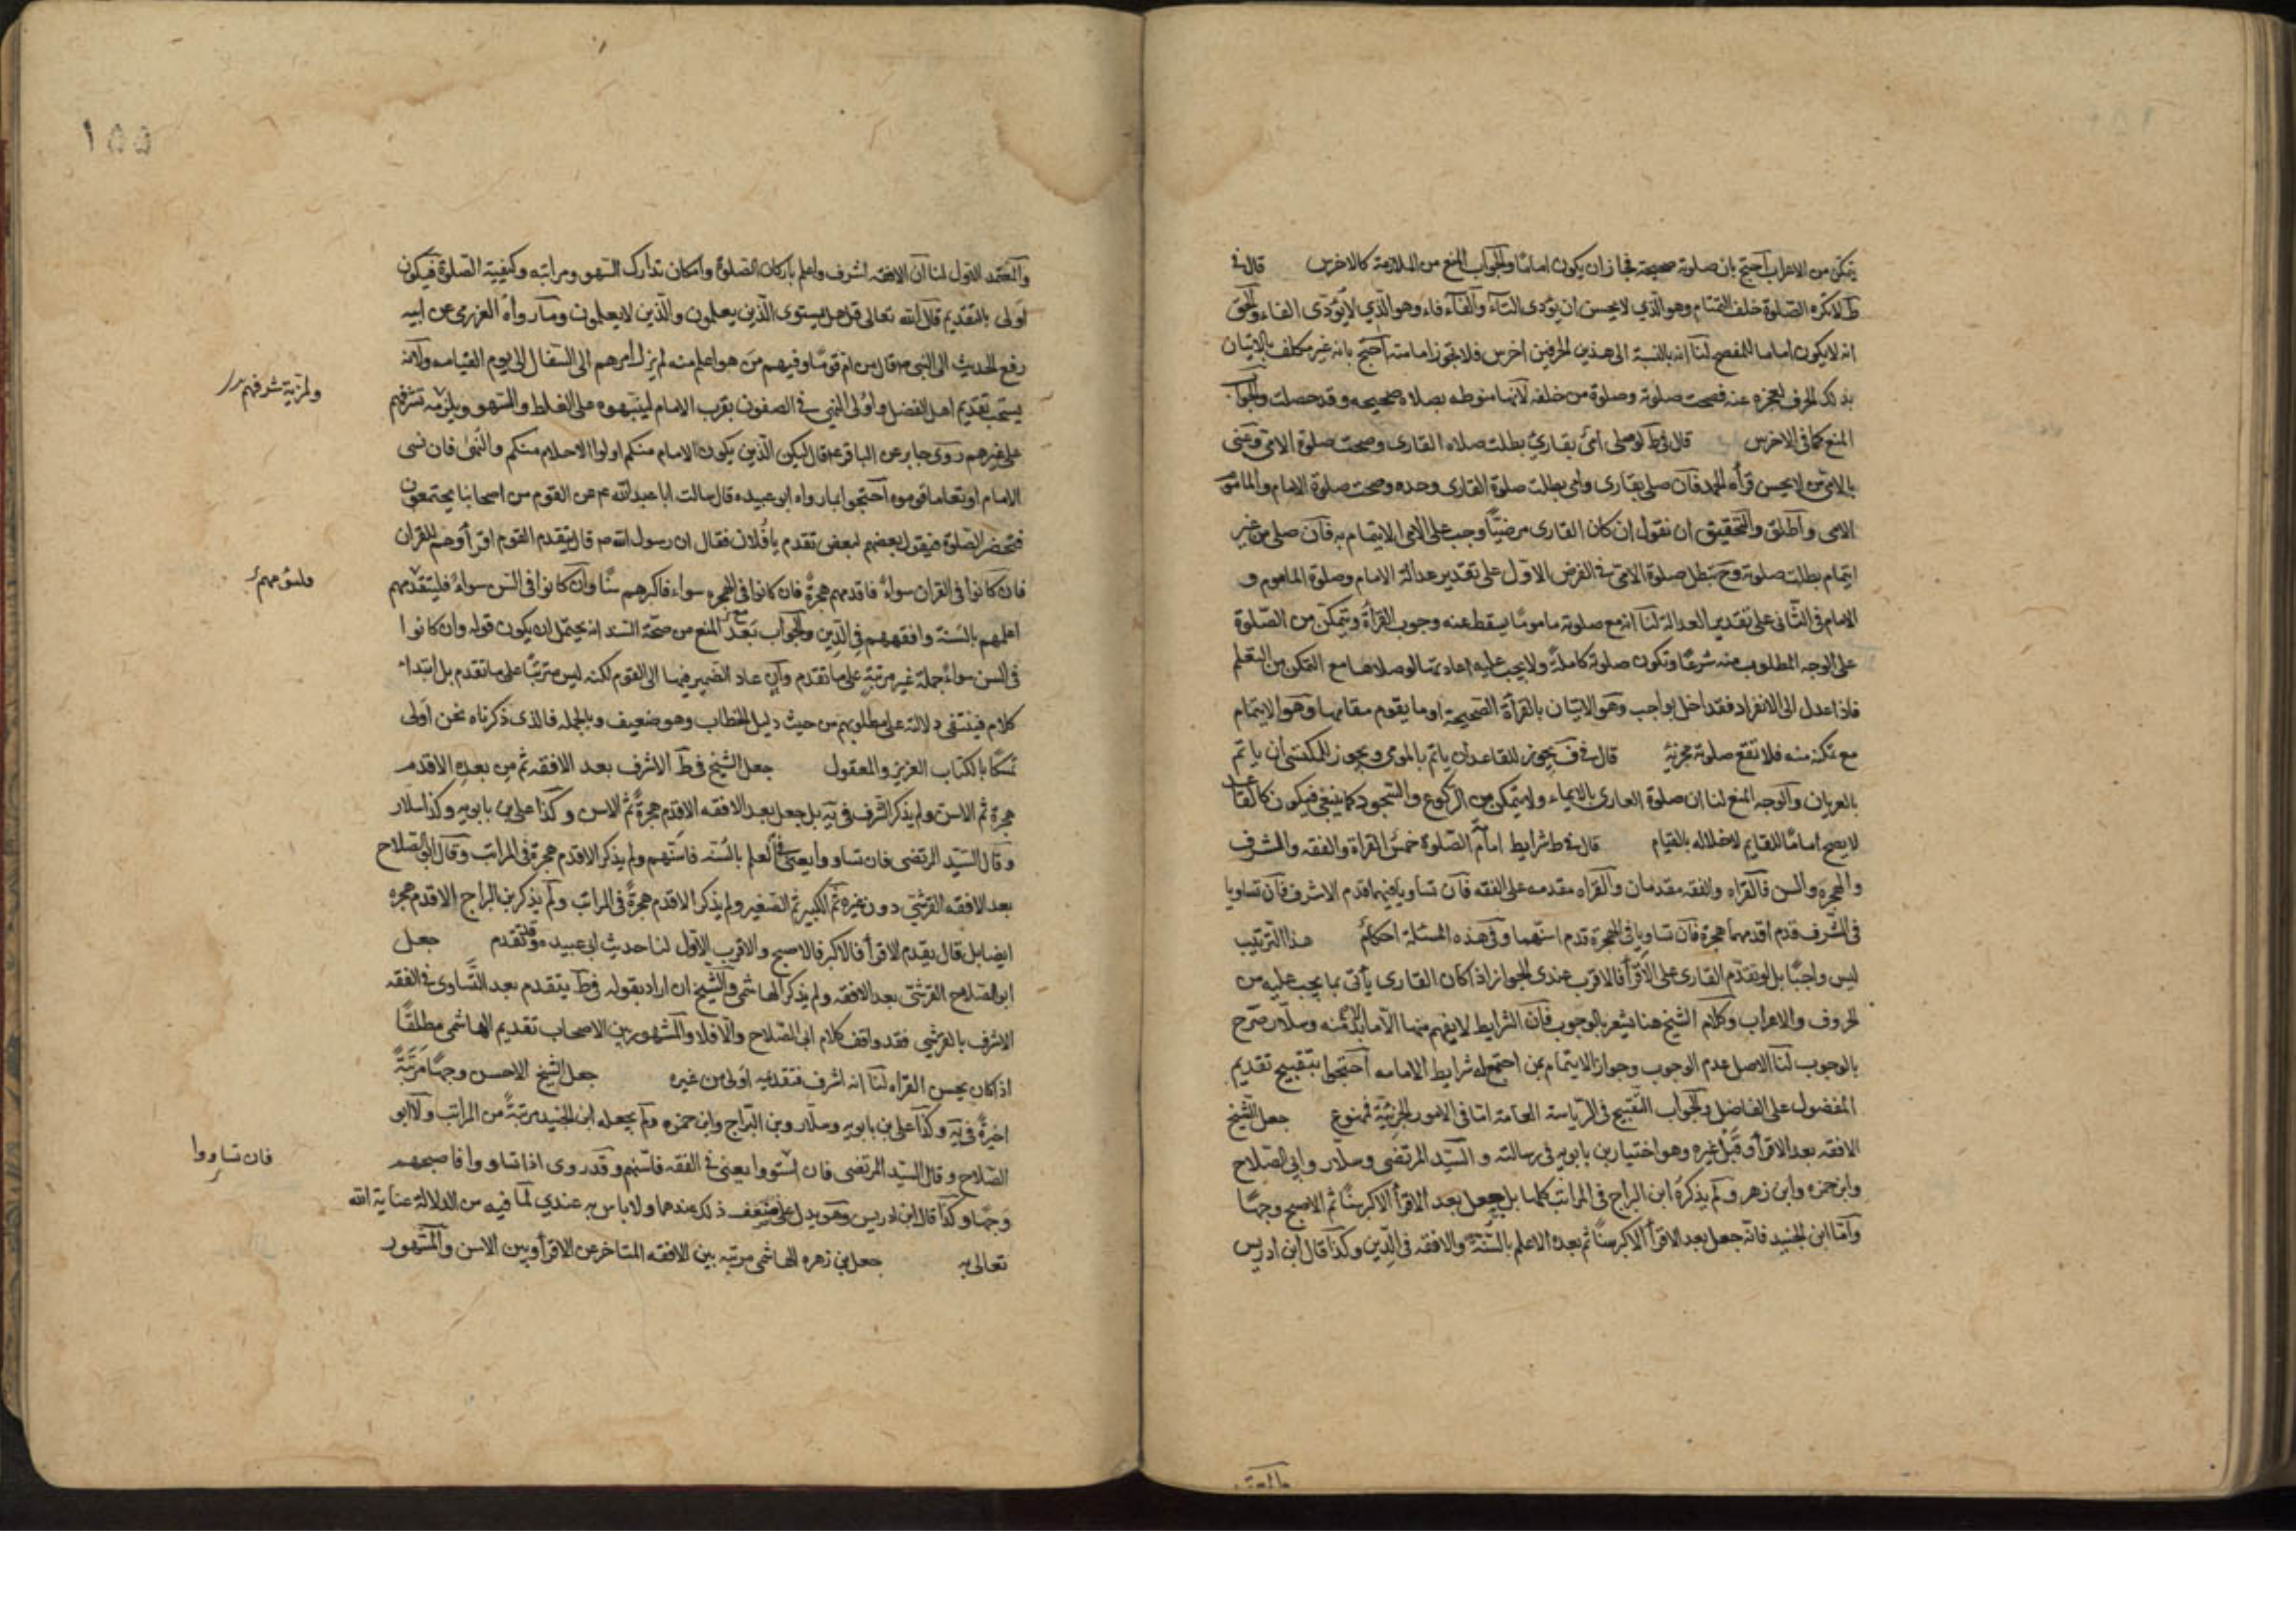 يتمكن من الاعراب احتج بان صلوته صحيحة فجاز ان يكون اماما والجواب المنع من الملازمة كالاخرس قال في
ط لا تكره الصلوة خلف التمتام وهو الذي لا يحسن ان يؤدى التاء والفأفاء وهو الذي لا يؤدى الفاء والحق
انه لا يكون اماما للمفصح لنا انه بالنسبة الى هذين الحرفين اخرس فلا تجوز امامته احتج بانه غير مكلف بالاتيان
بذلك الحرف لعجزه عنه فصحت صلوته وصلوة من خلفه لانها منوطه بصلاه صحيحه وقد حصلت والجواب
المنع كما في الاخرس قال في ط لو صلى امي بقارئ بطلت صلاه القارى وصحت صلوة الامي وعنى
بالامي من لا يحسن قرأه الحمد فان صلى بقارى وامي بطلت صلوة القارى وحده وصحت صلوة الامام والماموم
الامى واطلق والتحقيق ان نقول ان كان القارى مرضيا وجب على الامي الايتمام به فان صلى من غير
ايتمام بطلت صلوته وح تبطل صلوة الامي في الفرض الاول على تقدير عدالة الامام وصلوة الماموم و
الامام في الثاني على تقدير العدالة لنا انه مع صلوته ماموما يسقط عنه وجوب القرأة ويتمكن من الصلوة
على الوجه المطلوب منه شرعا وتكون صلوته كاملة ولا يجب عليه اعادتها لو صلاها مع التمكن من التعلم
فاذا عدل الى الانفراد فقد اخل بواجب وهو الاتيان بالقرأة الصحيحة او ما يقوم مقامها وهو الايتمام
مع تمكنه منه فلا تقع صلوته مجزية قال في ف يجوز للقاعد ان ياتم بالمومى ويجوز للمكتسى ان ياتم
بالعريان والوجه المنع لنا ان صلوة العارى بالايماء ولا يتمكن من الركوع والسجود كما ينبغي فيكون كالقاعد
لا يصح اماما للقايم لاخلاله بالقيام قال في ط شرايط امام الصلوة خمس القراة والفقه والشرف
والهجرة والسن فالقراه والفقه مقدمان والقراه مقدمه على الفقه فان تساويا فيهما قدم الاشرف فان تساويا
في الشرف قدم اقدمهما هجرة فان تساويا في الهجرة قدم اسنهما وفي هذه المسئلة احكام هذا الترتيب
ليس واجبا بل لو تقدم القارى على الاقرأ فالاقرب عندى الجواز اذا كان القارى يأتى بما يجب عليه من
الحروف والاعراب وكلام الشيخ هنا يشعر بالوجوب فان الشرايط لا يفهم منها الا ما لابد منه وسلار صرح
بالوجوب لنا الاصل عدم الوجوب وجواز الايتمام بمن اجتمع له شرايط الامامه احتجوا بتقبيح تقديم
المفضول على الفاضل والجواب التقبيح في الرياسة العامة اما في الامور الجزئية فممنوع جعل الشيخ
الافقه بعد الاقرأ وقبل غيره وهو اختيار بن بابويه في رسالته والسيد المرتضى وسلار وابي الصلاح
وابن حمزه وابن زهره ولم يذكره ابن البراج في المراتب كلها بل جعل بعد الاقرأ الاكبر سنا ثم الاصبح وجها
واما ابن الجنيد فانه جعل بعد الاقرأ الاكبر سنا ثم بعده الاعلم بالسنة والافقه في الدين وكذا قال ابن ادريس
والمعتمد
١٥٥
والمعتمد الاول لنا ان الافقه اشرف واعلم باركان الصلوة وامكان تدارك السهو ومراتبه وكيفية الصلوة فيكون
اولى بالتقديم قال الله تعالى قل هل يستوى الذين يعلمون والذين لا يعلمون وما رواه العزرمى عن ابيه
رفع الحديث الى النبي ص قال من ام قوما وفيهم من هو اعلم منه لم يزل امرهم الى السفال الى يوم القيامه ولانه
يستحب تقديم اهل الفضل واولى النهى في الصفوف بقرب الامام لينبهوه على الغلط والسهو ويلزمه تشرفهم
ولمزية شرفهم
على غيرهم روى جابر عن الباقر ع قال ليكن الذين يكون الامام منكم اولوا الاحلام منكم والنهى فان نسى
الامام او تعاما قوموه احتجوا بما رواه ابو عبيده قال سالت ابا عبد الله ع عن القوم من اصحابنا يجتمعون
فتحضر الصلوة فيقول بعضهم لبعض تقدم يا فلان فقال ان رسول الله ص قال يتقدم القوم اقرأوهم للقران
فان كانوا في القران سواء فاقدمهم هجرة فان كانوا في الهجره سواء فاكبرهم سنا وان كانوا في السن سواء فليتقدمهم
اعلمهم بالسنة وافقههم في الدين والجواب بعد المنع من صحة السند انه يحتمل ان يكون قوله وان كانوا
في السن سواء جملة غير مرتبة على ما تقدم وان عاد الضمير فيها الى القوم لكنه ليس مترتبا على ما تقدم بل ابتداء
كلام فينتفى دلالته على مطلوبهم من حيث دليل الخطاب وهو ضعيف وبالجمله فالذى ذكرناه نحن اولى
تمسكا بالكتاب العزيز والمعقول جعل الشيخ في ط الاشرف بعد الافقه ثم من بعده الاقدم
هجرة ثم الاسن ولم يذكر الشرف في ية بل جعل بعد الافقه الاقدم هجرة ثم الاسن وكذا على بن بابويه وكذا سلار
وقال السيد المرتضى فان تساووا يعنى في العلم بالسنه فاسنهم ولم يذكر الاقدم هجرة في المراتب وقال ابو الصلاح
بعد الافقه القرشي دون غيره ثم الكبير ثم الصغير ولم يذكر الاقدم هجرة في المراتب ولم يذكر بن البراج الاقدم هجره
ايضا بل قال يقدم الاقرأ فالاكبر فالاصبح والاقرب الاول لنا حديث ابى عبيده وقد تقدم جعل
ابو الصلاح القرشي بعد الافقه ولم يذكر الهاشمي والشيخ ان اراد بقوله في ط يتقدم بعد التساوى في الفقه
الاشرف بالقرشي فقد وافق كلام ابي الصلاح والا فلا والمشهور بين الاصحاب تقديم الهاشمى مطلقا
اذا كان يحسن القراه لنا انه اشرف فتقديمه اولى من غيره جعل الشيخ الاحسن وجها مرتبة
اخيرة في ية وكذا على بن بابويه وسلار وبن البراج وابن حمزه ولم يجعله ابن الجنيد مرتبة من المراتب ولا ابو
الصلاح وقال السيد المرتضى فان استووا يعنى في الفقه فاسنهم وقد روى اذا تساووا فاصبحهم
فان تساووا
وجها وكذا قال ابن ادريس وهو يدل على ضعف ذلك عندهما ولا باس به عندي لما فيه من الدلالة عناية الله
تعالى به جعل بن زهره الهاشمى مرتبه بين الافقه المتاخر عن الاقرأ وبين الاسن والمشهور